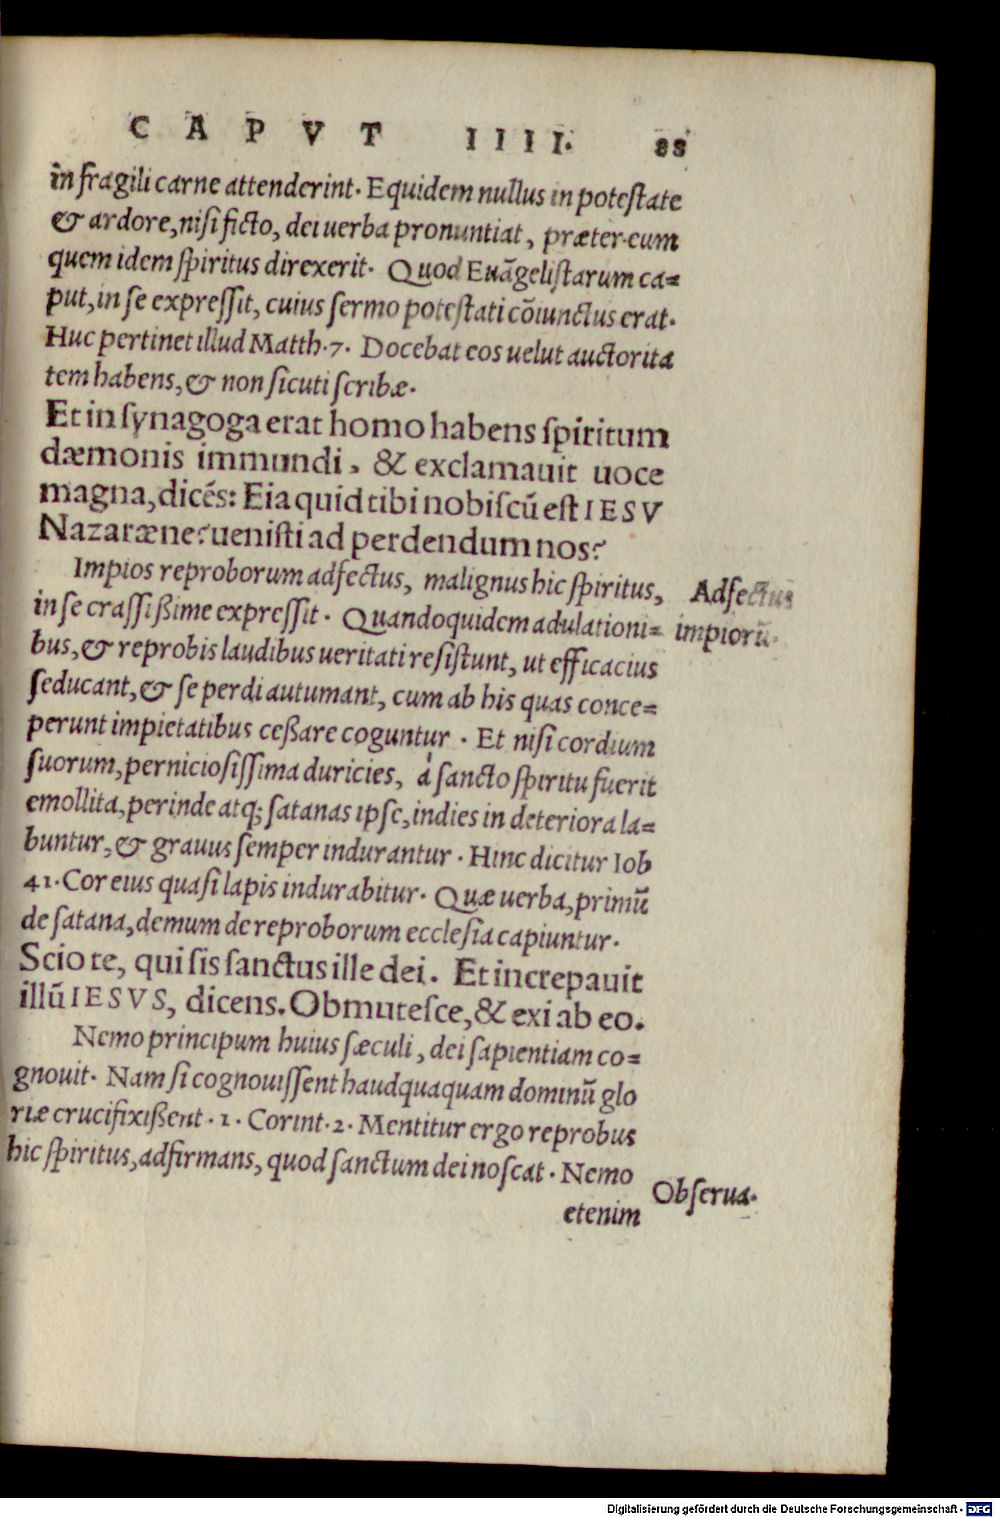 CAPVT IIII. 88
in fragili carne attenderint. Equidem nullus in potestate
& ardore, nisi ficto, dei uerba pronuntiat, præter eum
quem idem spiritus direxerit. Quod Euãgelistarum ca=
put, in se expressit, cuius sermo potestati cõiunctus erat.
Huc pertinet illud Matth. 7. Docebat eos uelut auctorita
tem habens, & non sicuti scribæ.
Et in synagoga erat homo habens spiritum
dæmonis immundi, & exclamauit uoce
magna, dicẽs: Eia quid tibi nobiscũ est IESV
Nazaræne? uenisti ad perdendum nos?
Impios reproborum adfectus, malignus hic spiritus,
Adfectus
in se crassißime expressit. Quandoquidem adulationi=
impiorũ.
bus, & reprobis laudibus ueritati resistunt, ut efficacius
seducant, & se perdi autumant, cum ab his quas conce=
perunt impietatibus ceßare coguntur. Et nisi cordium
suorum, perniciosissima duricies, à sancto spiritu fuerit
emollita, perinde atq; satanas ipse, indies in deteriora la=
buntur, & grauus semper indurantur. Hinc dicitur Iob
41. Cor eius quasi lapis indurabitur. Quæ uerba, primũ
de satana, demum de reproborum ecclesia capiuntur.
Scio te, qui sis sanctus ille dei. Et increpauit
illũ IESVS, dicens. Obmutesce, & exi ab eo.
Nemo principum huius sæculi, dei sapientiam co=
gnouit. Nam si cognouissent haudquaquam dominũ glo
riæ crucifixißent. 1. Corint. 2. Mentitur ergo reprobus
hic spiritus, adfirmans, quod sanctum dei noscat. Nemo
Obserua.
etenim
Digitalisierung gefördert durch die Deutsche Forschungsgemeinschaft - DFG